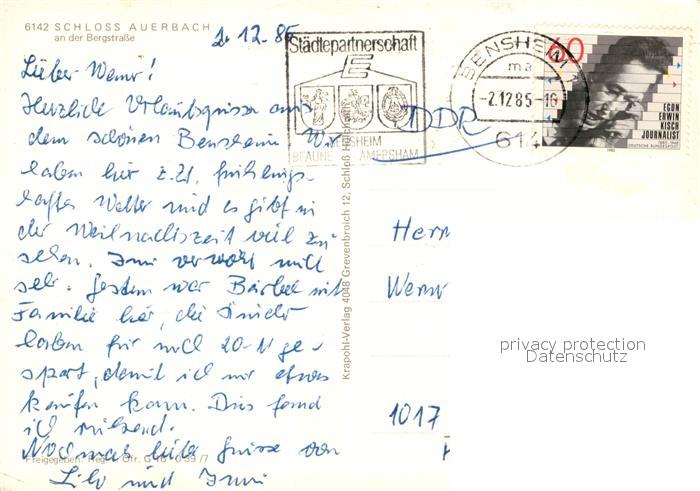 6142 SCHLOSS AUERBACH
an der Bergstraße
2. 12. 85
Lieber Werner!
Herzliche Urlaubsgrüsse aus
dem schönen Bensheim. Wir
haben hier z.Zt. frühlings-
haftes Wetter und es gibt in
der Weihnachtszeit viel zu
sehen. Irmi verwöhnt mich
sehr. Gestern war Bärbel mit
Familie hier, die Kinder
haben für mich 20.- M ge-
spart, damit ich mir etwas
kaufen kann. Das fand
ich rührend.
Nochmals liebe Grüsse von
Lilo und Irmi
Freigegeben: Reg.
Krapohl-Verlag 4048 Grevenbroich 12, Schloß Hülchrath
Städtepartnerschaft
E
BENSHEIM
BEAUNE AMERSHAM
BENSHEIM
ma
-2.12.85-16
614
60
EGON
ERWIN
KISCH
JOURNALIST
1885-1948
DEUTSCHE BUNDESPOST
1985
DDR
Herrn
Werner
1017
privacy protection
Datenschutz